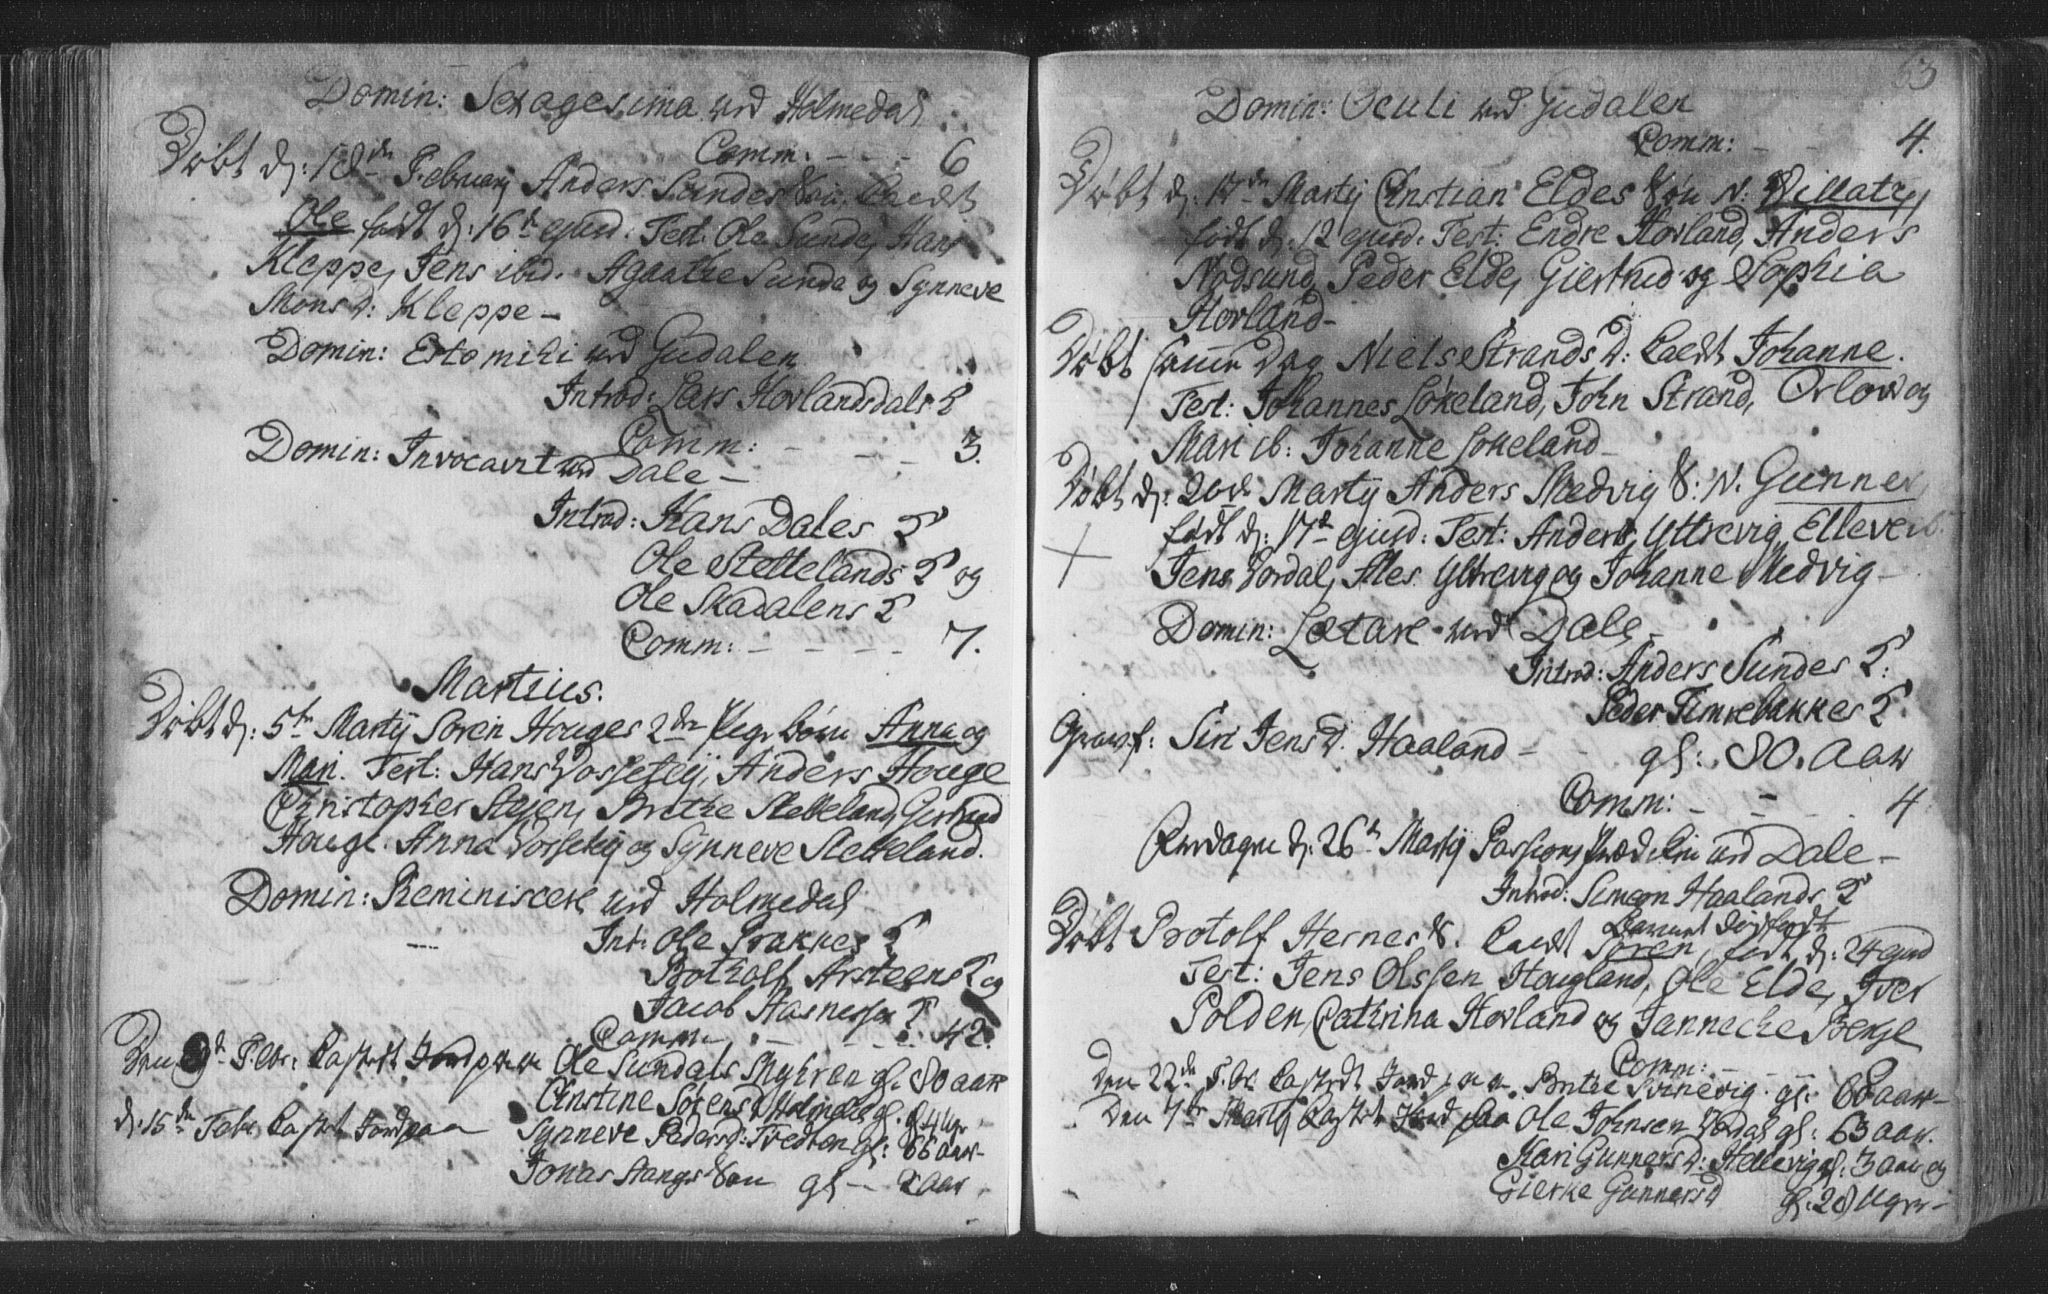 Domin: Sexagesima ved Holmedal
Comm: - - - 6
Døbt d: 18de February Anders Sundes Søn, kaldt
Ole født d: 16de ejusd. Test. Ole Sunde, Hans
Kleppe, Jens ibid. Agaathe Sunde og Synneve
Mons d: Kleppe -
Domin: Estomihi ved Gudalen
Introd: Lars Hovlandsdals
Comm: - - - 3.
Domin: Invocavit ved Dale -
Introd: Hans Dales
Ole Stettelands og
Ole Skadalens
Comm: - - - - 7.
Martius.
Døbt d: 5te Martij Søren Houges 2de Pige børn Anna og
Mari. Test: Hans Vossetej, Anders Houge
Christopher Stejen, Brethe Stetteland, Giertrud
Houge. Anna Vossetej og Synneve Stetteland.
Domin: Reminiscere ved Holmedal
Int: Ole Brakkes
Botholf Arsteens og
Jacob Hasnes
Comm: - - - 42.
Den 9de Febr: kastet Jord paa Ole Sundals Myhren gl. 80 aar
Christine Sørens d Holmedal gl:
d: 15de Febr. kastet Jord paa Synneve Peders d: Tvedten gl: 66 aar -
Jonas Stangs Søn gl - 2 aar
63
Domin: Oculi ved Gudalen
Comm: - - 4.
Døbt d: 17de Martij Christian Eldes Søn N: Villatz,
født d: 12 ejusd. Test: Endre Hovland, Anders
Nødsund, Peder Elde, Giertrud og Sophia
Hovland -
Døbt samme Dag Niels Strands D: kaldt Johanne.
Test: Johannes Løkeland, John Strand, Orlow og
Mari ib: Johanne Løkeland -
Døbt d: 20de Martij Anders Medvig S: N. Gunner,
født d: 17de ejusd: Test: Anders Yttrevig, Elleve ib.
Jens Vordal, Ales Yttrevig og Johanne Medvig -
Domin: Lætare ved Dale -
Introd: Anders Sundes
Peder Timrebakkes
Gravf: Siri Jens d. Haaland - - gl: 80. Aar
Comm: - - - 4
Onsdagen d: 26de Martij Passions Prædiken ved Dale -
Introd: Simeon Haalands
Barnet dødfødt
Døbt Botolf Hernes S. kaldt Søren, født d: 24 ejusd
Test: Jens Olssen Hougland, Ole Elde, Iver
Polden, Cathrina Hovland og Janneche Berge
Comm: - -
Den 22de Febr kastedt Jord paa Brithe Svinevig. gl: 68 aar -
Den 7de Martij kastet Jord paa Ole Johnsen Vordal gl: 63 aar.
Mari Gunners d: Stellevig gl. 3 aar og
Gierke Gunners d gl. 20 Uger -